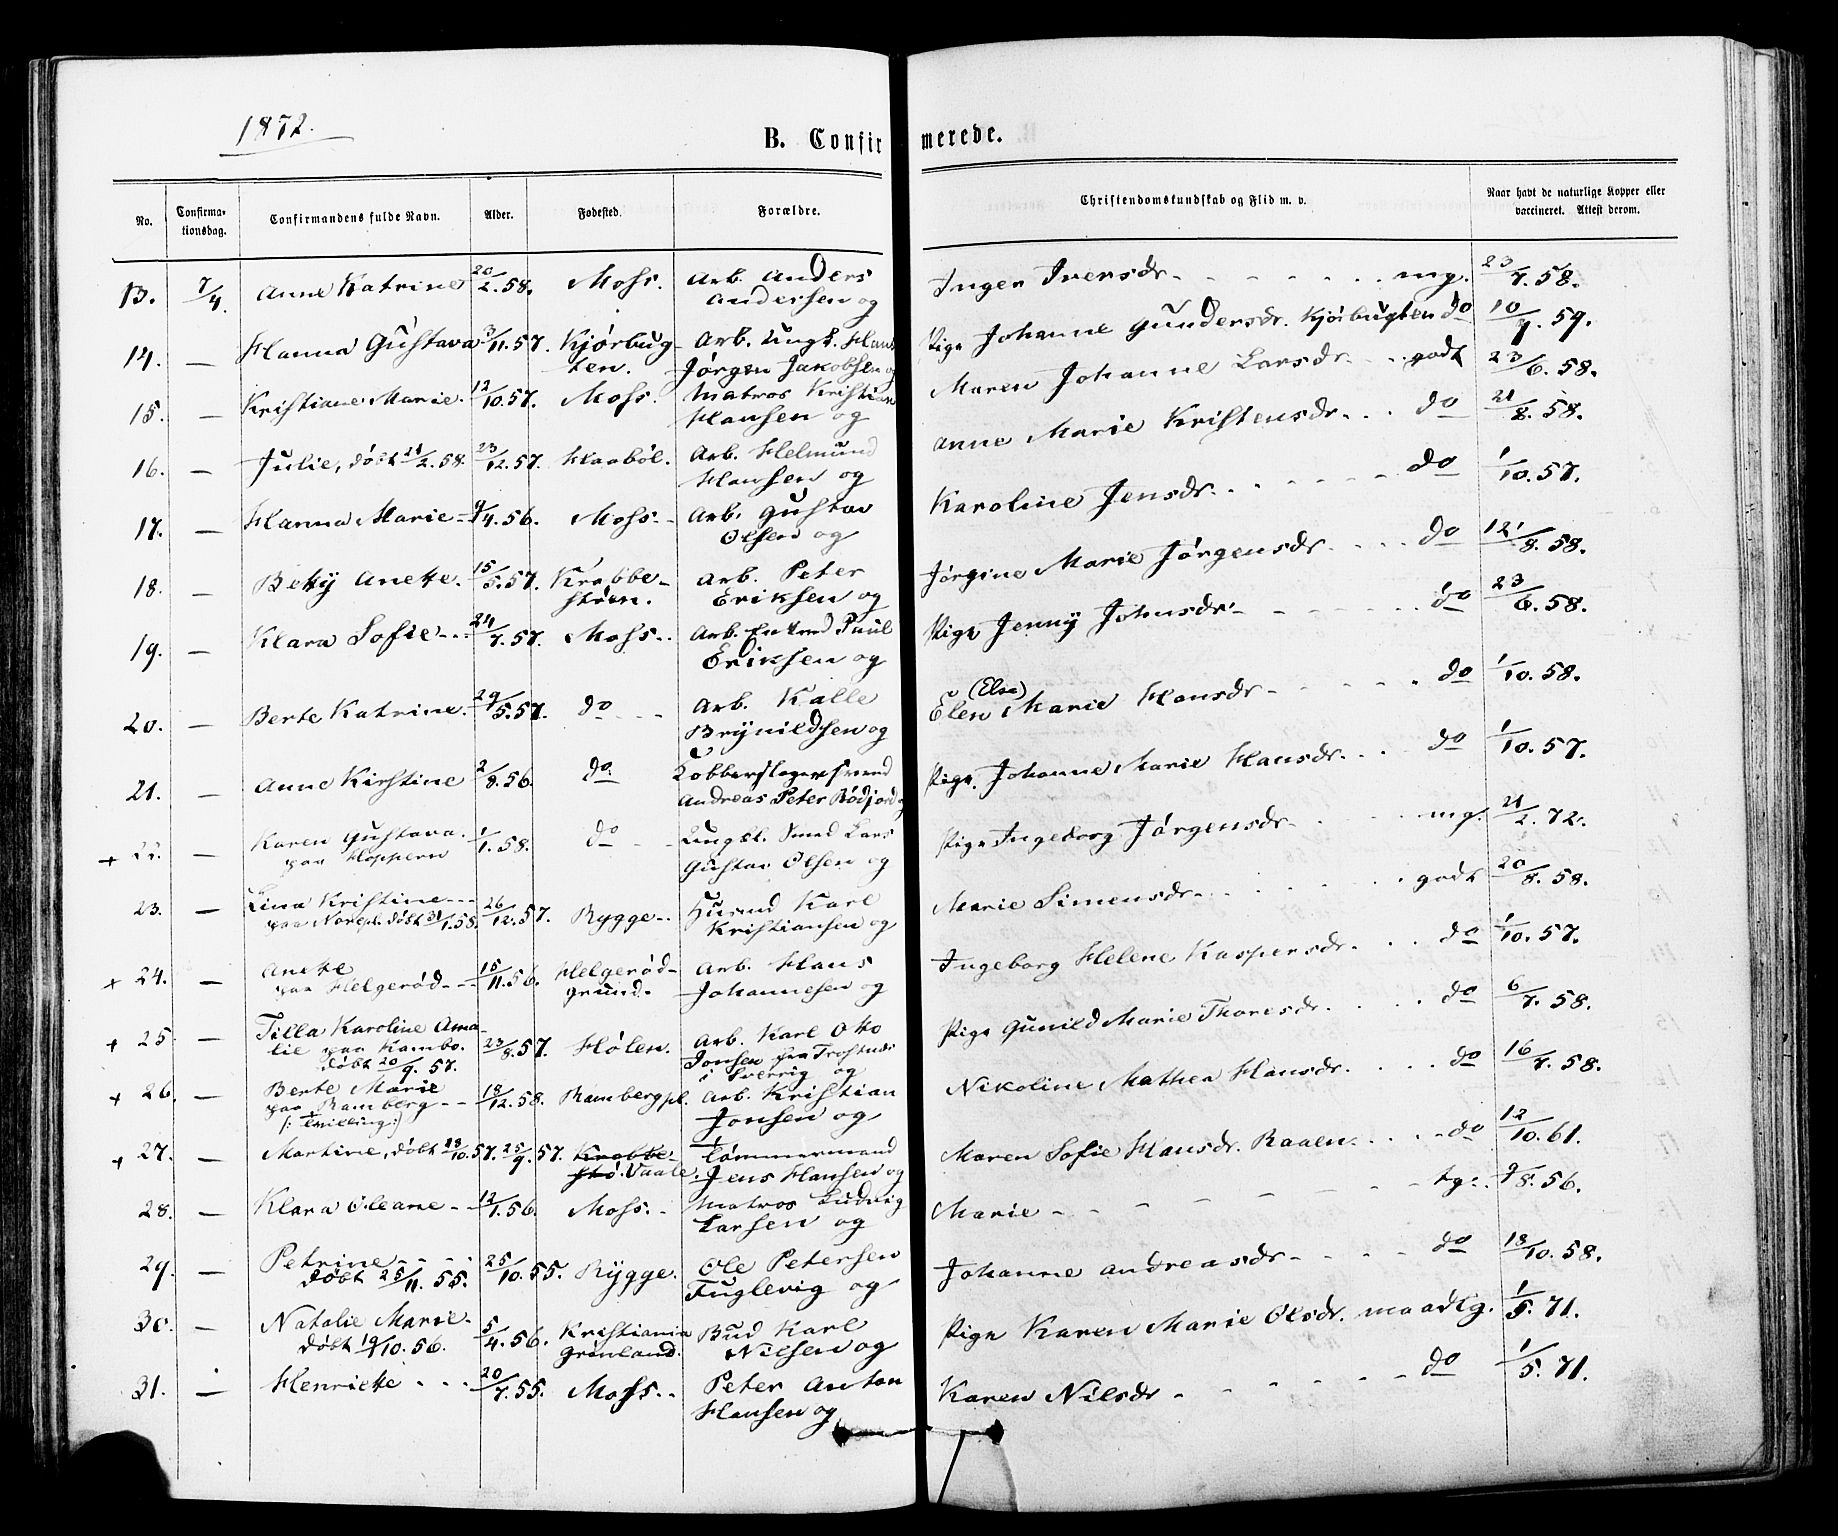 1872.
B. Confirmerede.
No. Confirmationsdag. Confirmandens fulde Navn. Alder. Fødested. Forældre. Christendomskundskab og Flid m. v. Naar havt de naturlige Kopper eller vaccineret. Attest derom.
13. 7/4 Anne Katrine 20/2.58. Moss. Arb. Anders Inger Iversdr. mg. 23/7.58.
Andersen og
14. — Hanna Gustava 3/11.57. Kjørbug- Arb. Ungk. Hans Pige Johanne Gundersdr. Kjørbugten do 10/7.59.
ten. Jørgen Jakobsen og
15. — Kristiane Marie. 12/10.57. Moss. Matros Kristian Maren Johanne Larsdr. godt 23/6.58.
Hansen og
16. — Julie, døbt 21/2.58. 23/12.57. Haabøl. Arb. Helmund Anne Marie Kristensdr. do 21/8.58.
Hansen og
17. — Hanna Marie 9/4.56. Moss. Arb. Gustav Karoline Jensdr. do 1/10.57.
Olsen og
18. — Beky Anette. 15/5.57. Krabbe- Arb. Peter Jørgine Marie Jørgensdr. do 12/8.58.
støen. Eriksen og
19. — Klara Sofie 24/7.57. Moss. Arb. Enkemd Paul Pige Jenny Johnsdr. do 23/6.58.
Eriksen og
20. — Berte Katrine. 29/5.57. do Arb. Kalle Elen (Else) Marie Hansdr. do 1/10.58.
Brynildsen og
21. — Anne Kirstine 2/8.56. do Kobberslagersvend Pige Johanne Marie Hansdr. do 1/10.57.
Andreas Peter Rødjord og
+ 22. — Karen Gustava. 1/1.58. do Ungk. Smed Lars Pige Ingeborg Jørgensdr. mg. 21/2.72.
paa Hoppern Gustav Olsen og
23. — Lina Kristine 26/12.57. Rygge Husmd Karl Marie Simensdr. godt 20/8.58.
paa Norepl. døbt 31/1.58. Kristiansen og
+ 24. — Anette 15/11.56. Helgerød- Arb. Hans Ingeborg Helene Kaspersdr. do 1/10.57.
paa Helgerød grund. Johannesen og
+ 25. — Tilla Karoline Ama- 23/8.57. Hølen. Arb. Karl Otto Pige Gunild Marie Thoresdr. do 6/7.58.
lie paa Kambo. Jonsen fra
døbt 20/9.57. i Sverrig og
+ 26. — Berte Marie 18/12.58. Rambergpl. Arb. Kristian Nikoline Mathea Hansdr. do 16/7.58.
paa Ramberg Jonsen og
/: Tvilling :/
+ 27. — Martine, døbt 18/10.57. 25/9.57. Krabbe- Tømmermand Maren Sofie Hansdr. Raaen. do 12/10.61.
stø. Vaale. Jens Hansen og
28. — Klara Oleane 12/1.56. Moss. Matros Ludvig Marie tg. 9/8.56.
Larsen og
29. — Petrine 25/10.55. Rygge. Ole Petersen Johanne Andreasdr do 18/10.58.
døbt 25/11.55. Fuglevig og
30. — Natalie Marie. 5/4.56. Kristiania Bud Karl Pige Karen Marie Olsdr. maadlg. 1/5.71.
døbt 19/10.56. Grønland. Nilsen og
31. — Henriette 20/7.55. Moss. Peter Anton Karen Nilsdr do 1/5.71.
Hansen og